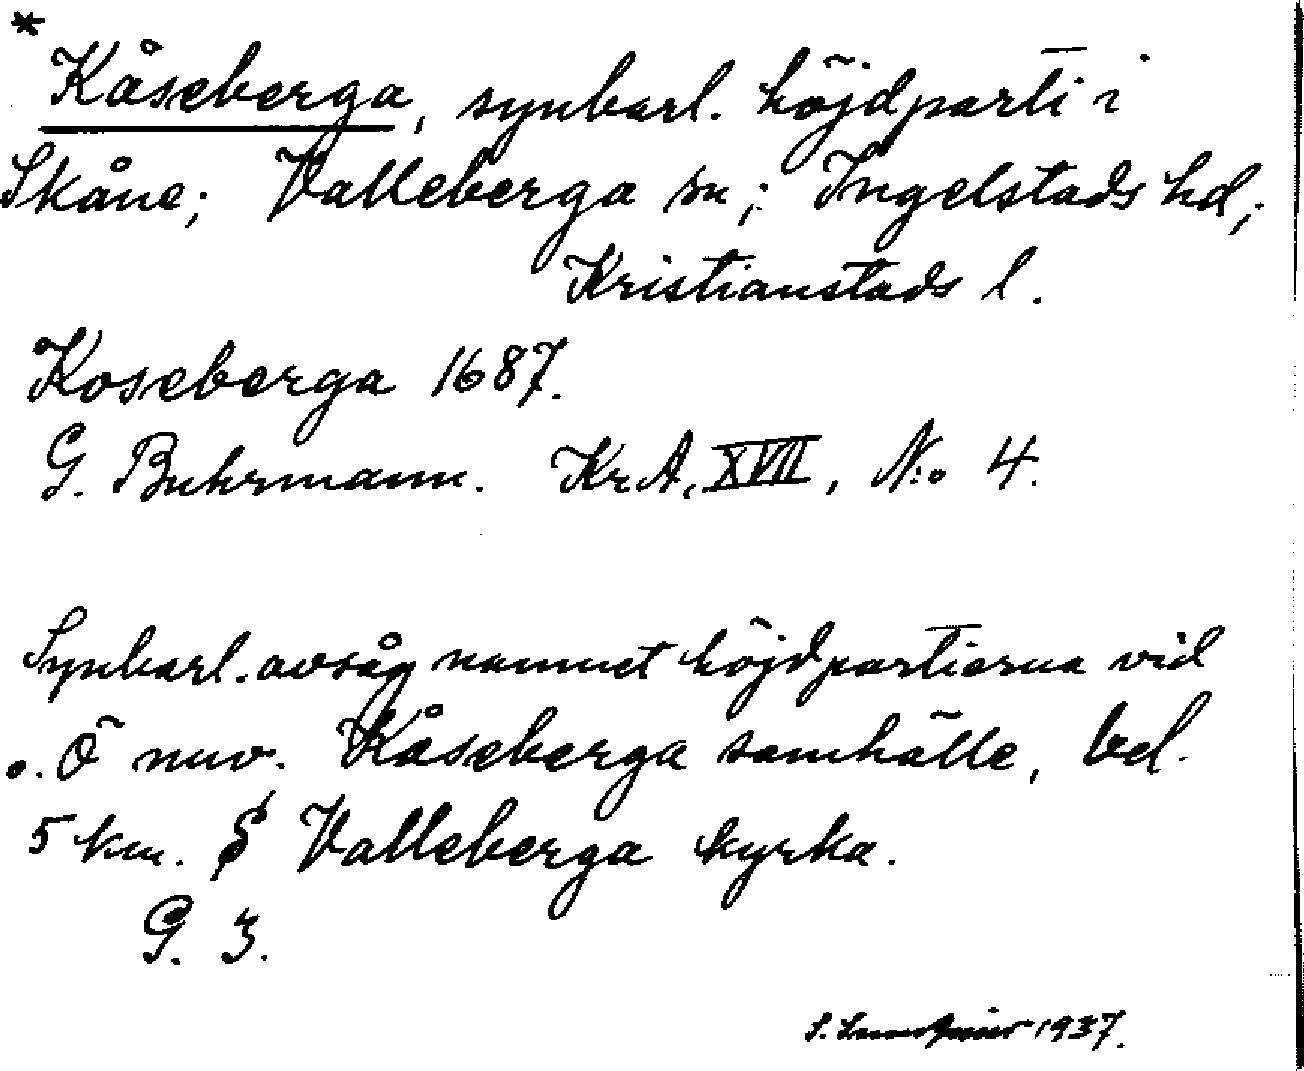 *
Kåseberga, synbarl. höjdparti i
Skåne; Valleberga sn; Ingelstads hd;
Kristianstads l.
Koseberga 1687.
G. Buhrmann. KrA, XVII, N:o 4.
Synbarl. avsåg namnet höjdpartierna vid
o. Ö nuv. Kåseberga samhälle, bel.
5 km. S Valleberga kyrka.
G. 3.
S. 1937.